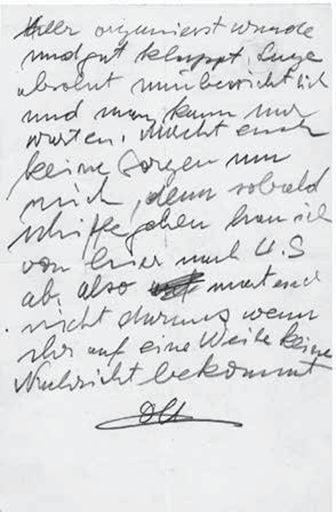 hier organisiert wurde
und gut klappt. Lage
absolut unübersichtlich
und man kann nur
warten. Macht euch
keine Sorgen um
mich, denn sobald
Schiffe gehen kann ich
von hier nach U.S
ab, also
nicht darum wenn
Ihr auf eine Weile keine
Nachricht bekommt